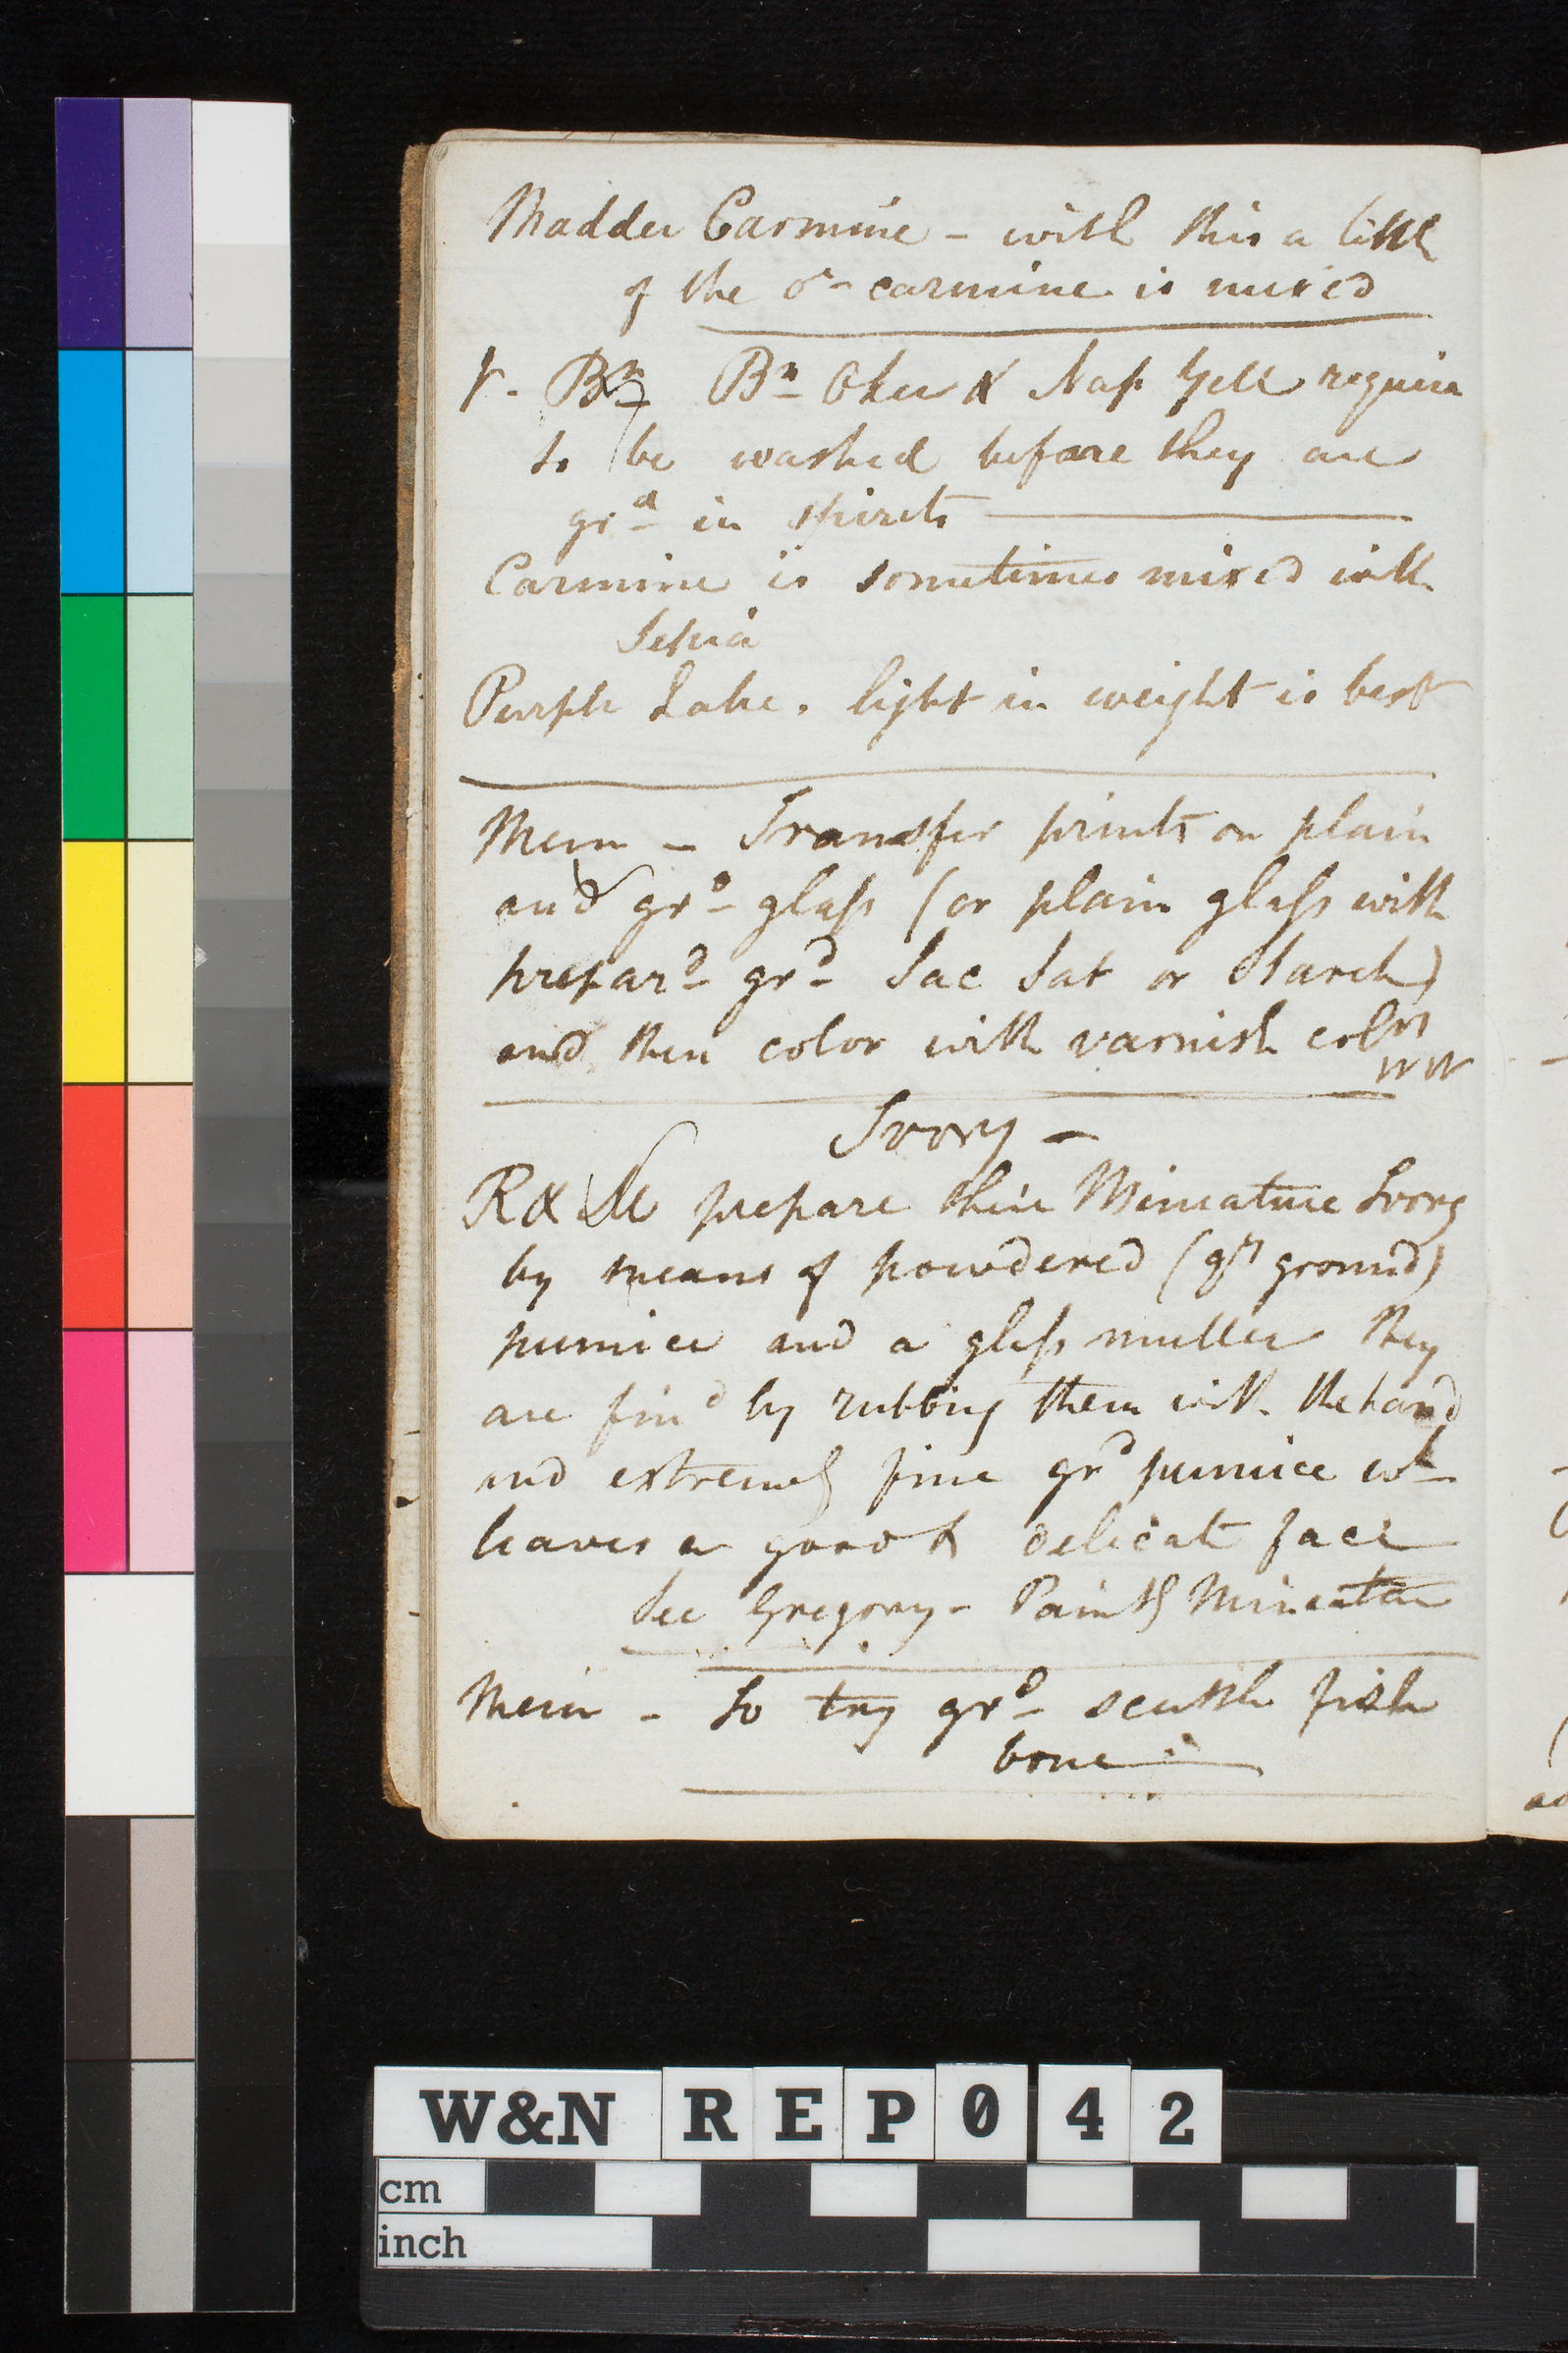 Madder Carmine - with this a little
of the or- carmine is mixed
V. Bn Bn Oker & Nap Yell require
to be washed before they are
grd in spirits
Carmine is sometimes mixed with
Sepia
Purple Lake. light in weight is best
Mem - Transfer prints on plain
and grd glass (or plain glass with
prepard grd Sac Sat or Starch)
and then color with varnish colrs
WW
Ivory -
R & M prepare their Miniature Ivory
by means of powdered (qy ground)
pumice and a glass muller they
are fin'd by rubbing them with the hand
and extremely fine grd pumice wh
leaves a good & delicate face
See Gregory - Paintg Miniature
Mem - to try grd scuttle fish
bone
W&N REP042
cm
inch